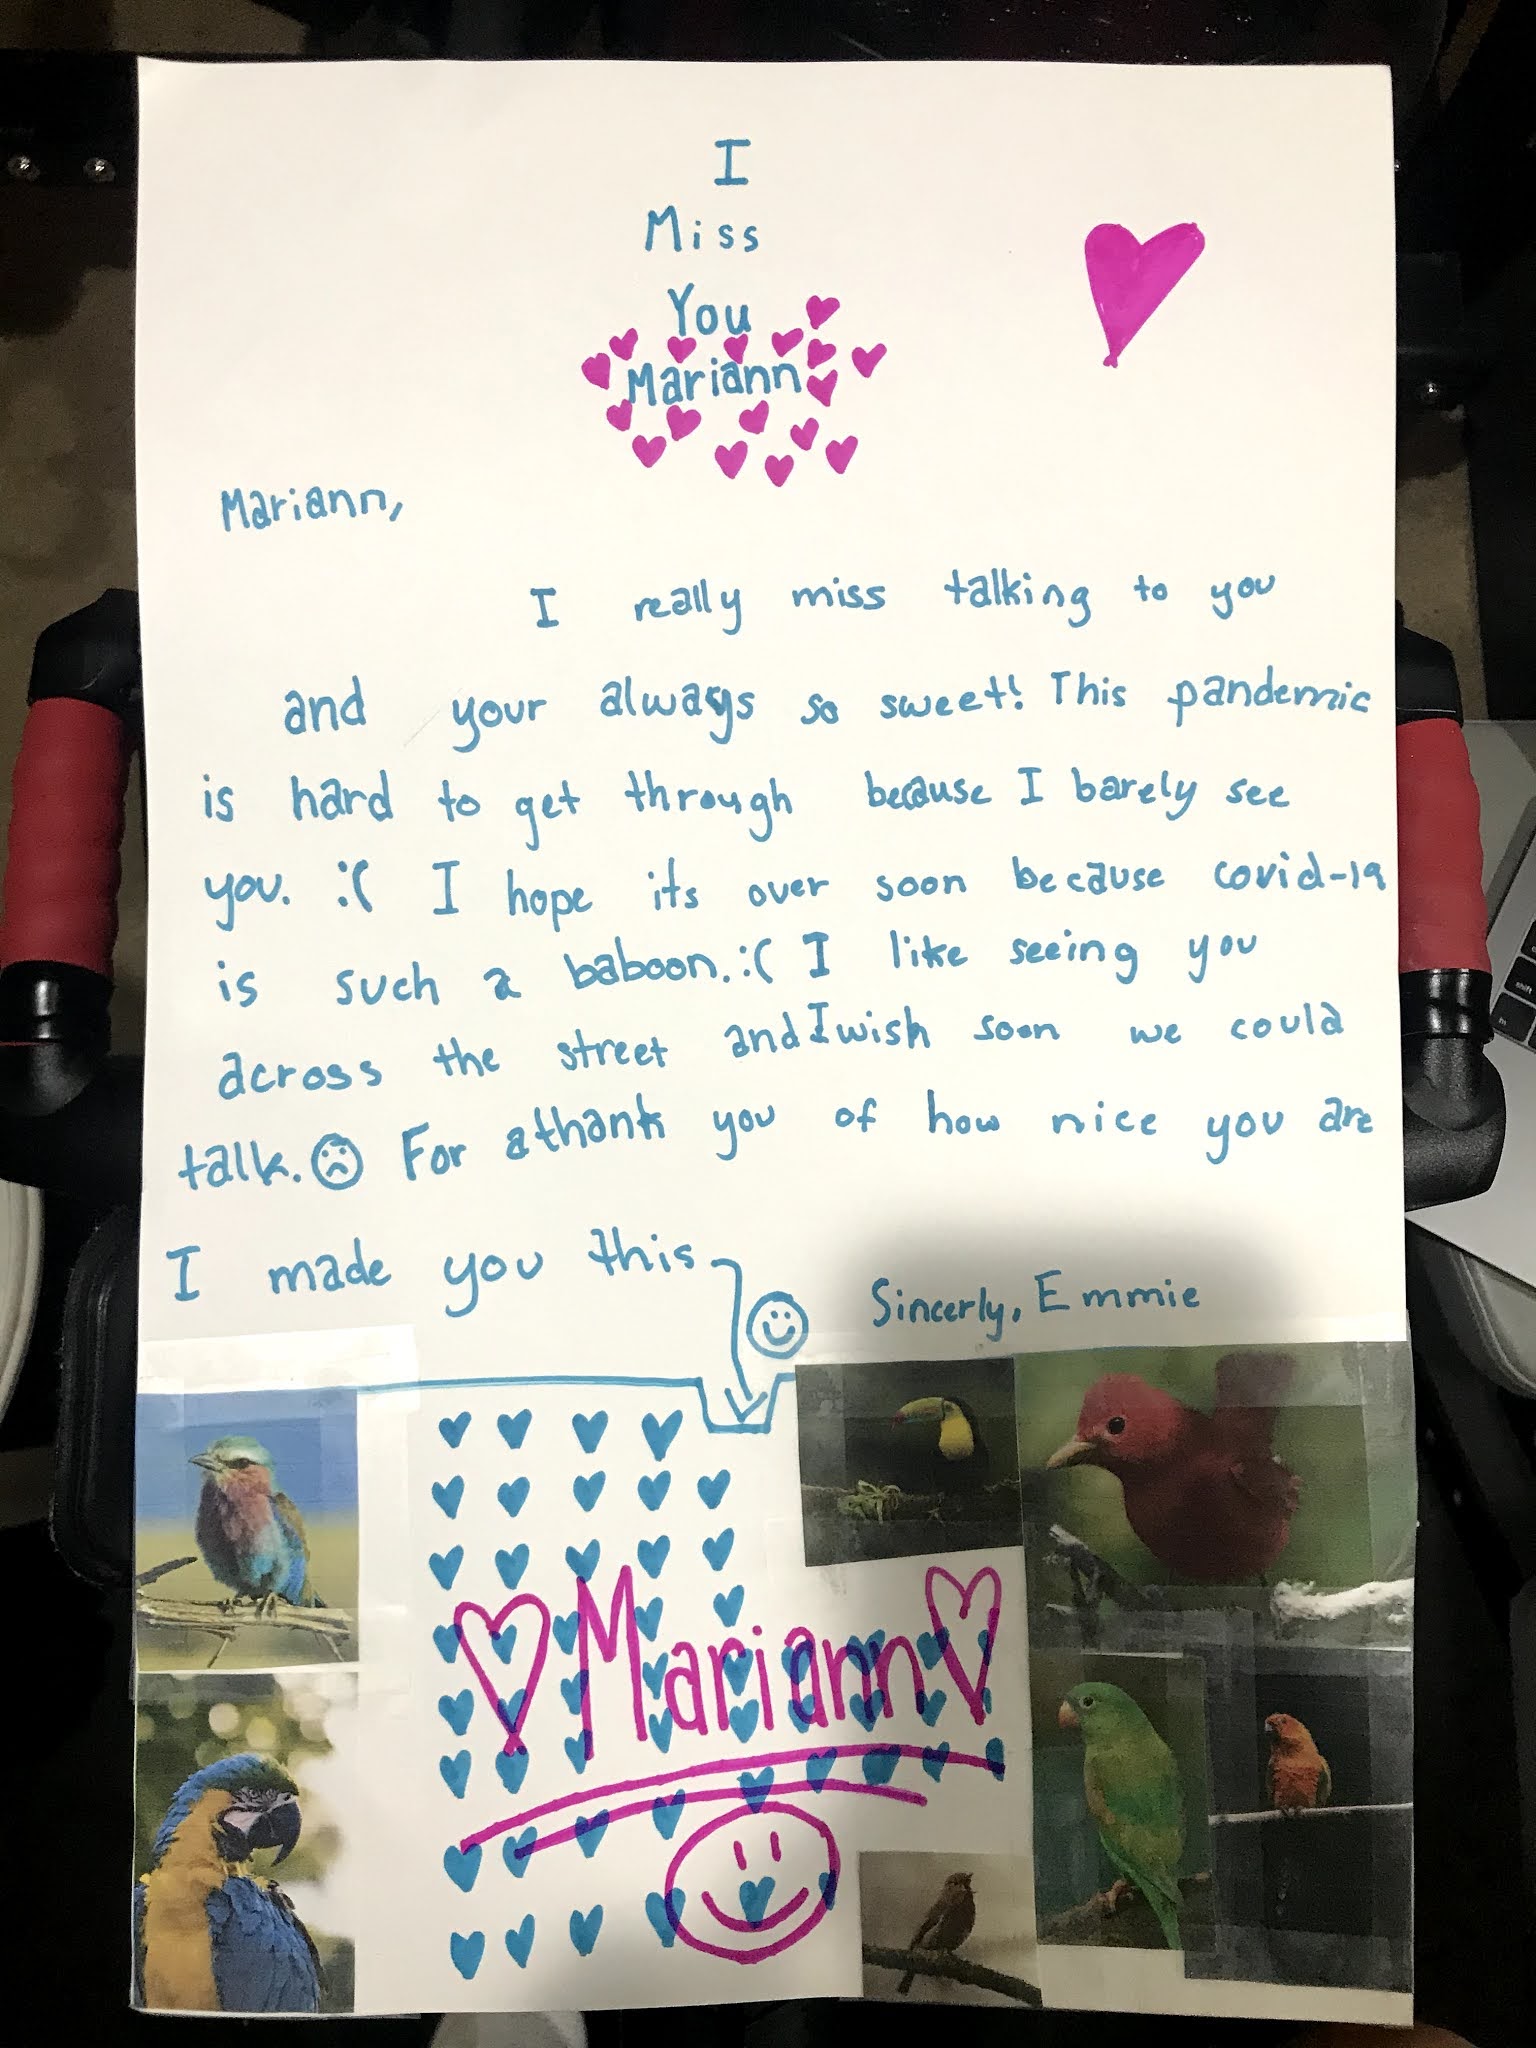 I
Miss
You
Mariann
Mariann,
I really miss talking to you
and your always so sweet! This pandemic
is hard to get through because I barely see
you. :( I hope its over soon because covid-19
is such a baboon. :( I like seeing you
across the street and I wish soon we could
talk. For a thank you of how nice you are
I made you this
Sincerly, Emmie
Mariann
shift
fn